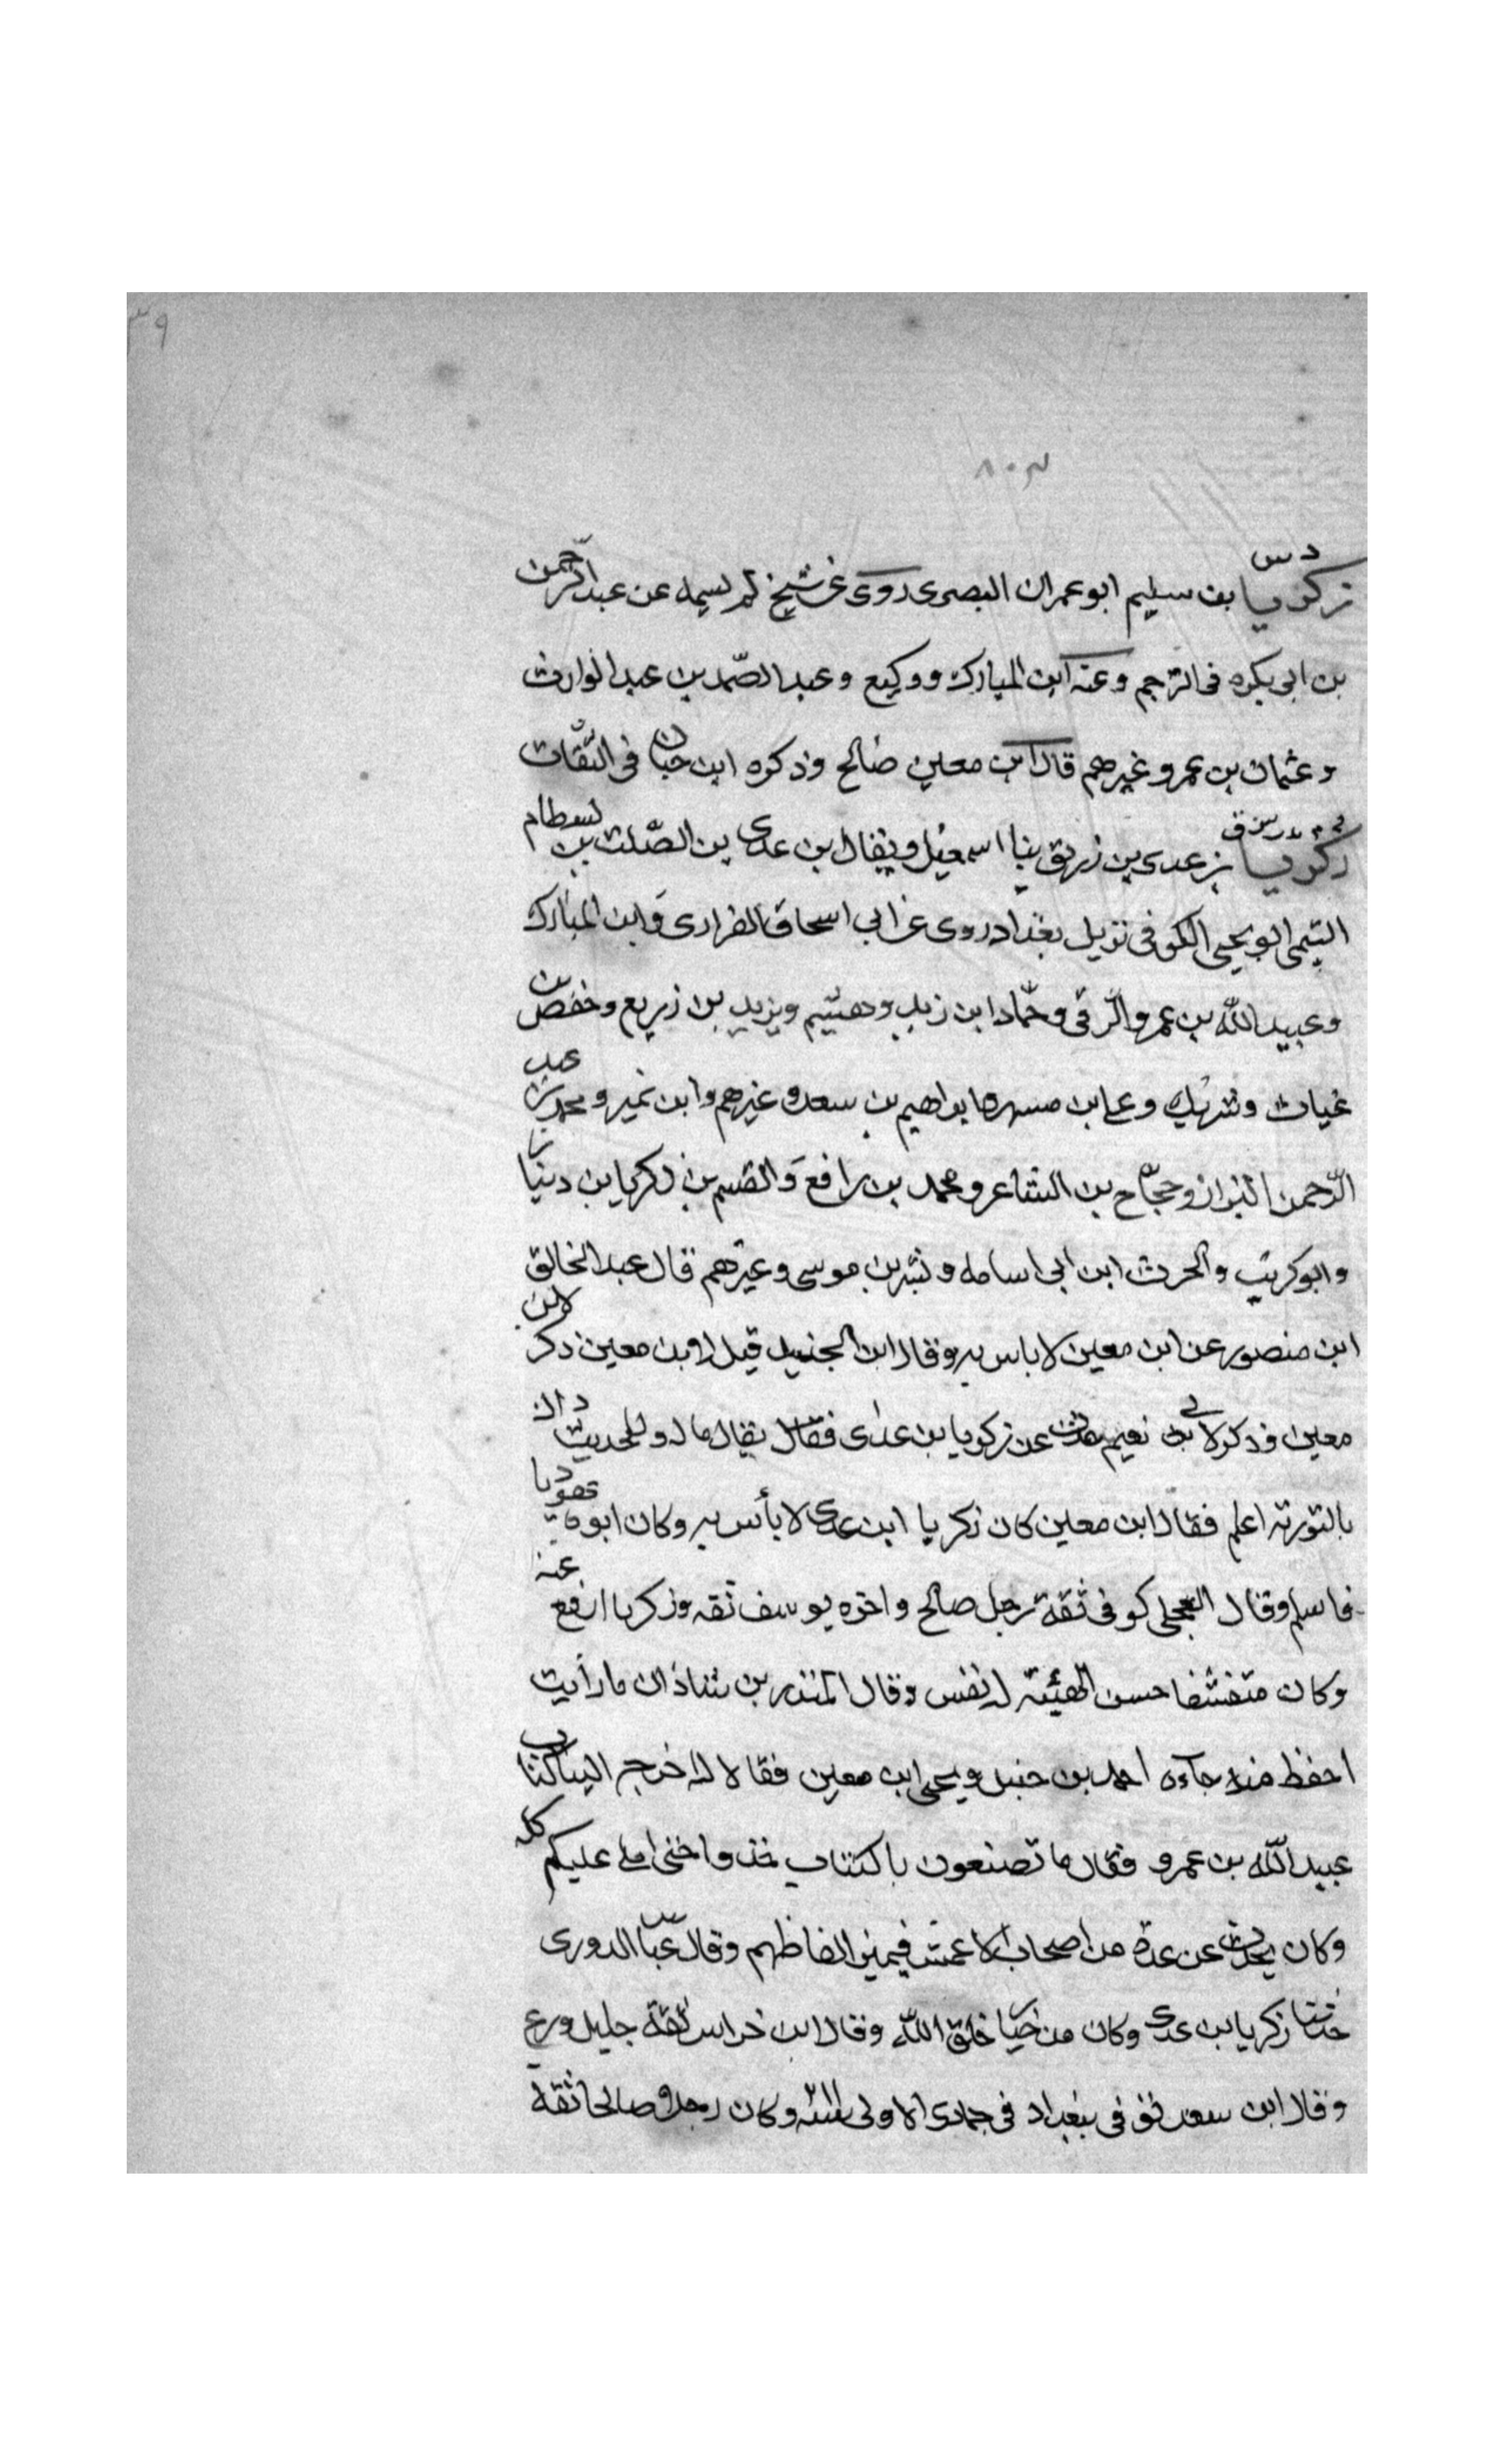 ٣٩
٨٠٣
د س
زكريا بن سليم ابو عمران البصرى روى عن شيخ لم يسمه عن عبد الرحمن
بن ابى بكره فى الرجم وعنه ابن المبارك ووكيع وعبد الصّمد بن عبد الوارث
وعثمان بن عمر وغيرهم قال ابن معين صالح وذكره ابن حبان فى الثقات
زكريا بن عدى بن زريق بن اسمعيل ويقال بن عدى بن الصّلت بن بسطام
التيمى ابو يحيى الكوفى نزيل بغداد روى عن ابى اسحاق الفزارى وابن المبارك
وعبيد الله بن عمرو الرّقى وحمّاد ابن زيد وهشيم ويزيد بن زريع وحفص بن
غياث وشريك وعلى ابن مسهر وابراهيم بن سعد وغيرهم وابن نمير ومحمد بن عبد
الرّحمن البزاز وحجاج بن الشاعر ومحمد بن رافع والقسم بن زكريا بن دينار
وابو كريب والحرث ابن ابى اسامه وبشر بن موسى وغيرهم قال عبد الخالق
ابن منصور عن ابن معين لا باس به وقال ابن الجنيد قيل لابن معين ذكر لابن
معين وذكر لابى نعيم حديث عن زكريا بن عدى فقال يقال ماله وللحديث ذاك
بالتورته اعلم فقال ابن معين كان زكريا ابن عدى لا بأس به وكان ابوه يهوديا
فاسلم وقال العجلى كوفى ثقة رجل صالح واخوه يوسف ثقه وزكريا ارفع عنه
وكان متقشفا حسن الهيئة له نفس وقال المنذر بن شاذان ما رأيت
احفظ منه جاءه احمد بن حنبل ويحيى ابن معين فقالا له اخرج الينا كتاب
عبيد الله بن عمرو فقال ما تصنعون بالكتاب خذوا حتى املى عليكم كله
وكان يحدث عن عدة من اصحاب الاعمش فيميز الفاظهم وقال عباس الدورى
حدثنا زكريا بن عدى وكان من خيار خلق الله وقال ابن خراش ثقة جليل ورع
وقال ابن سعد توفى فى بغداد فى جمادى الاولى وكان رجلا صالحا ثقة